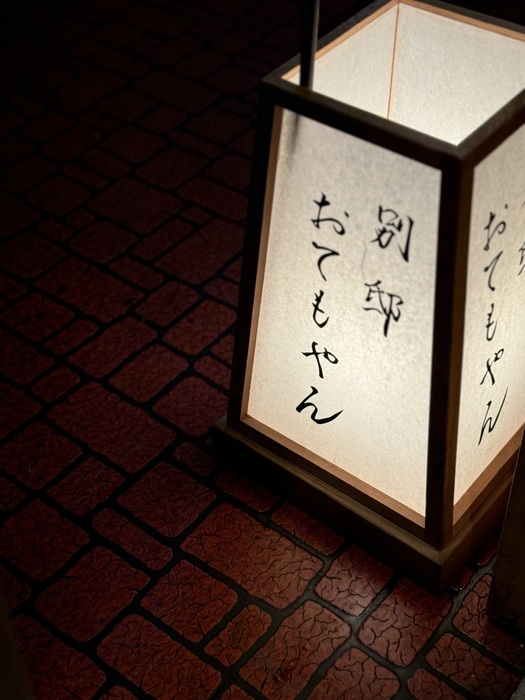 別邸
おてもやん
おてもやん